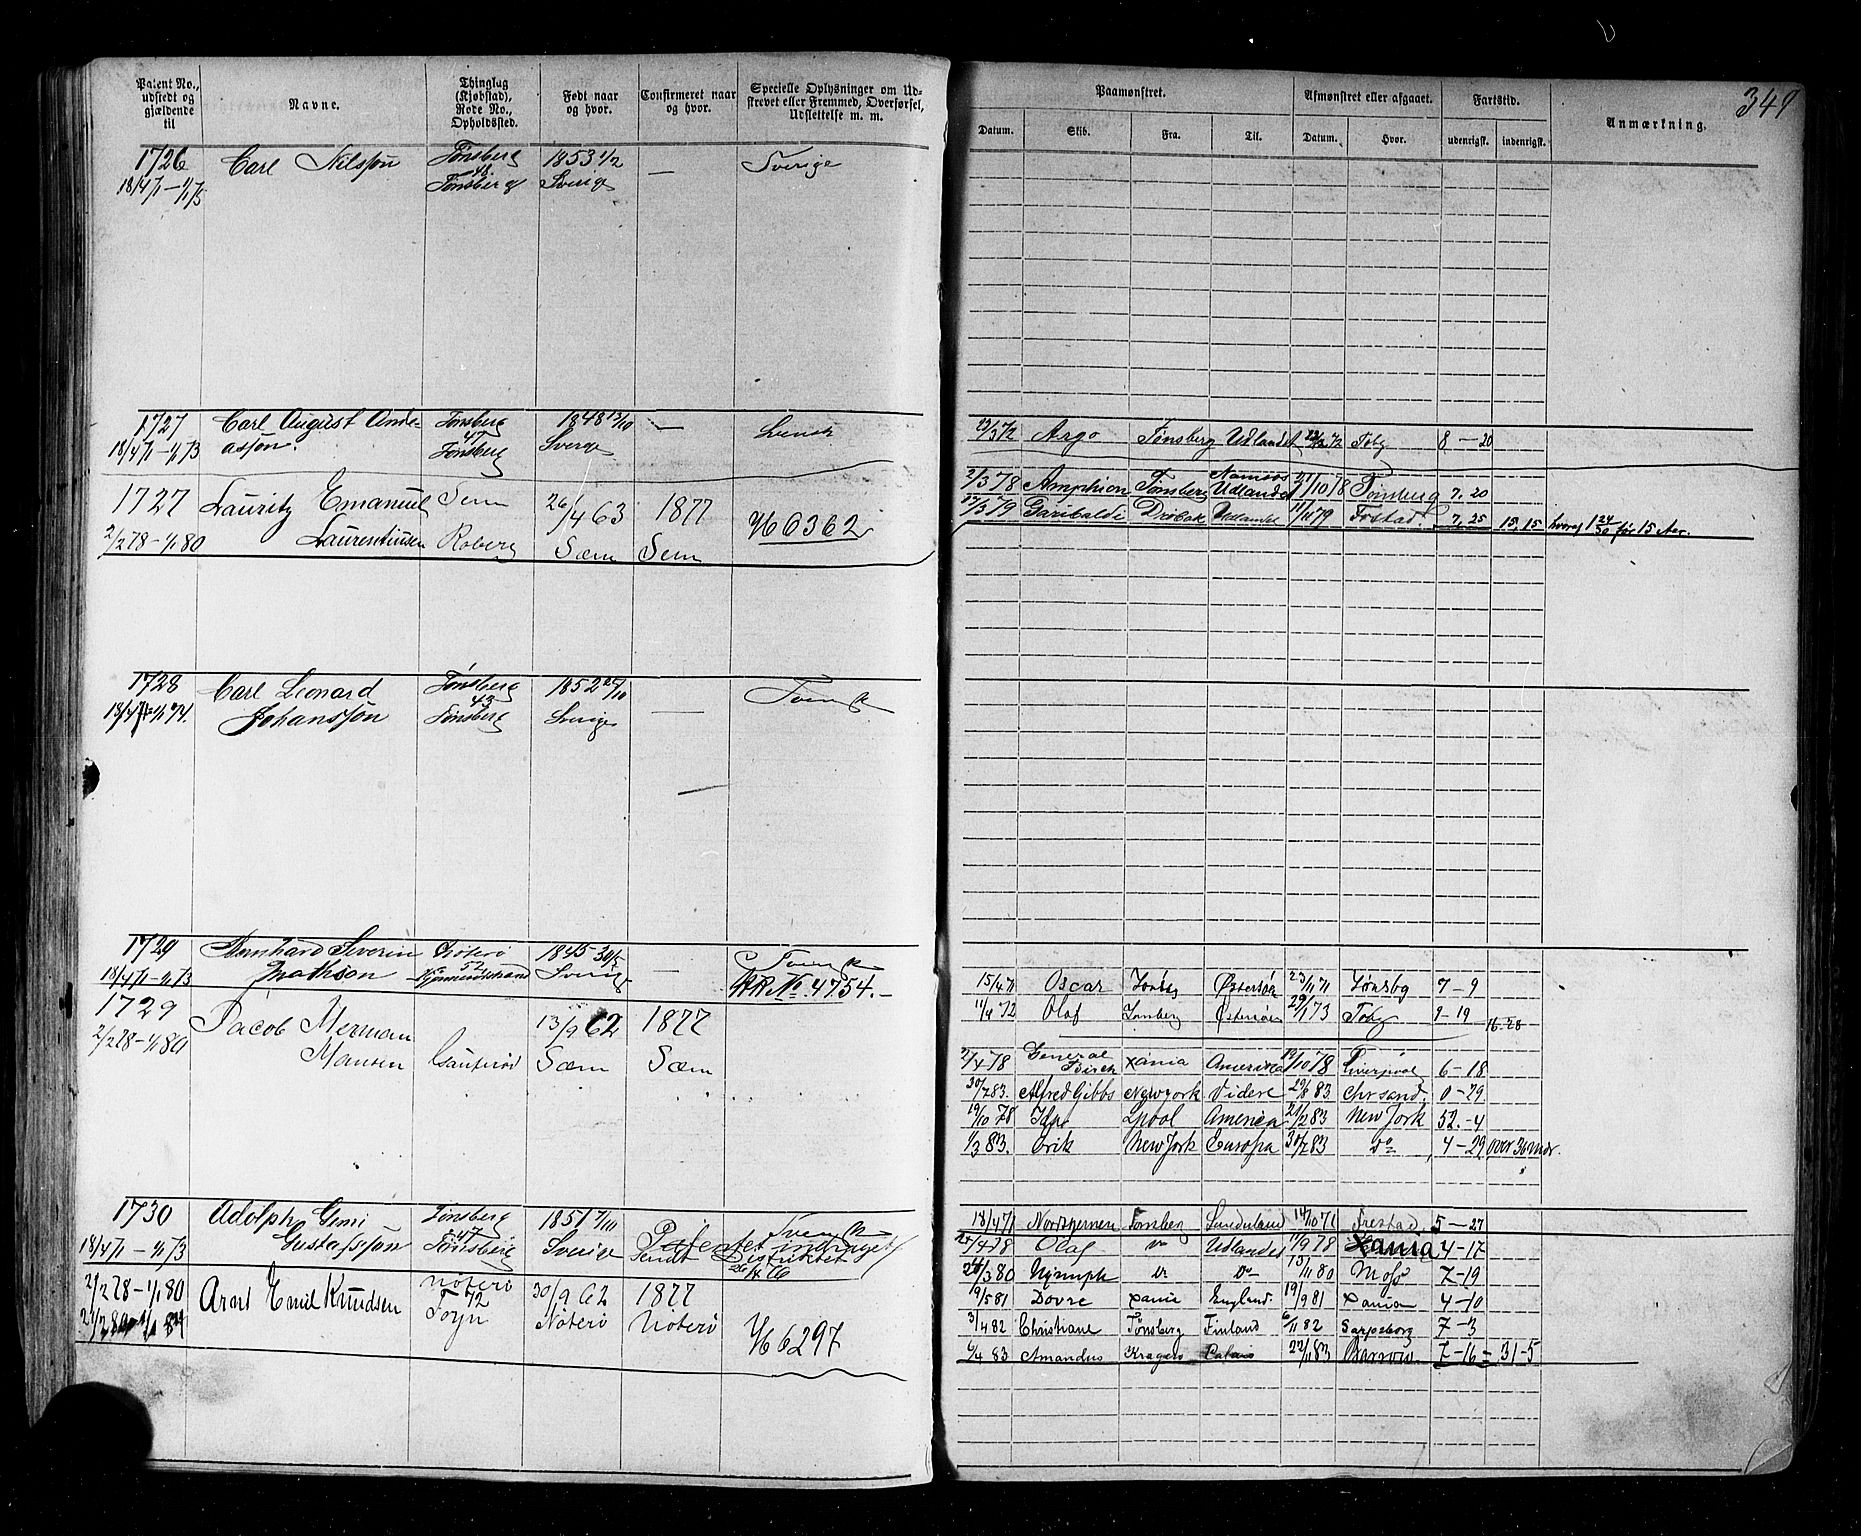 349
Patent No., udstedt og gjældende til
Navne.
Thinglag (Kjøbstad), Rode No., Opholdssted.
Født naar og hvor.
Confirmeret naar og hvor.
Specielle Oplysninger om Udstrevet eller Fremmed, Overførsel, Udslettelse m. m.
Paamønstret.
Afmønstret eller afgaaet.
Fartstid.
Anmærkning.
Datum. Skib. Fra. Til. Datum. Hvor. udenrigst. indenrigst.
1726 Carl Nilsson Tønsberg 1853 1/2 — Sverige
18/4 71 — 48 Tønsberg Sverige
1727 Carl August Andeasson. Tønsberg 1848 13/10 — Svensk
18/4 71 — 1/1 73 47 Tønsberg Sverge
23/3 72 Argo Tønsberg Udlandet 72 Tbg 8 — 20
1727 Lauritz Emanuel Sem 26/4 63 1877
2/2 78 — 1/1 80 Laurentiusen Roberg Sæm Sem H 6362
2/3 78 Amphion Tønsberg Namsos Udlandet 10 78 Tønsberg 7. 20
3 79 Garibaldi Drøbak Udlandet 79 7. 25 15, 15 hvoraf 1 24/30 før 15 Aar.
1728 Carl Leonard Tønsberg 1852 25/10
18/4 71 — 1/1 74. Johansson 43 Tønsberg Sverige — Svensk
1729 Bernhard Severin Nøterø 1845 30/5
18/4 71 — 1/1 73 Mathson 52 Sverig — Svensk
No 4754. —
15/4 71 Oscar Tønsbg Østersøen 23/11 71 Tønsbg 7 — 9
11/4 72 Olaf Tønsberg Østersøen 29/1 73 Tbg 9 — 19 16. 28
1729 Jacob Herman Hansen 13/9 62 1877
2/2 78 — 1/1 80 Sæm Sæm
2/4 78 General Birch Xania Amerika 10 78 Liverpool 6 — 18
30/7 83. Alfred Gibbs Newyork Videre 29/8 83 Chrsand. 0 — 29.
19/10 78 Lpool America 21/2 83 New York 52. — 4
1/3 83. Erik New York Europa 30/7 83 Do 4 — 29 over 36 Mdr.
1730 Adolph Gemi Tønsberg 1851 7/11 Svensk
18/4 71 — 1/1 73 Gustafsson 47 Tønsberg Sverige Patentet inddraget
Sendt Distriktet
18/4 71 Nordstjernen Tønsberg Sunderland 14/10 71 5 — 27
2/2 78 — 1/1 80 Arnt Emil Knudsen Nøterø 30/9 62 1877
12 Føyn Nøterø Nøterø H 6297
4 78 Olaf " Udlandet 9 78 Xania 4 — 17
3 80 Nymph " Do 13/11 80 Moss 7 — 19
19/5 81 Dovre Xania England. 19/9 81 Xania 4 — 10
3/4 82 Christiane Tønsberg Finland 6/11 82 Sarpsborg 7 — 3
6/4 83 Amandus Kragerø Calais 22/11 83 Barrow 7 — 16 = 31 — 5